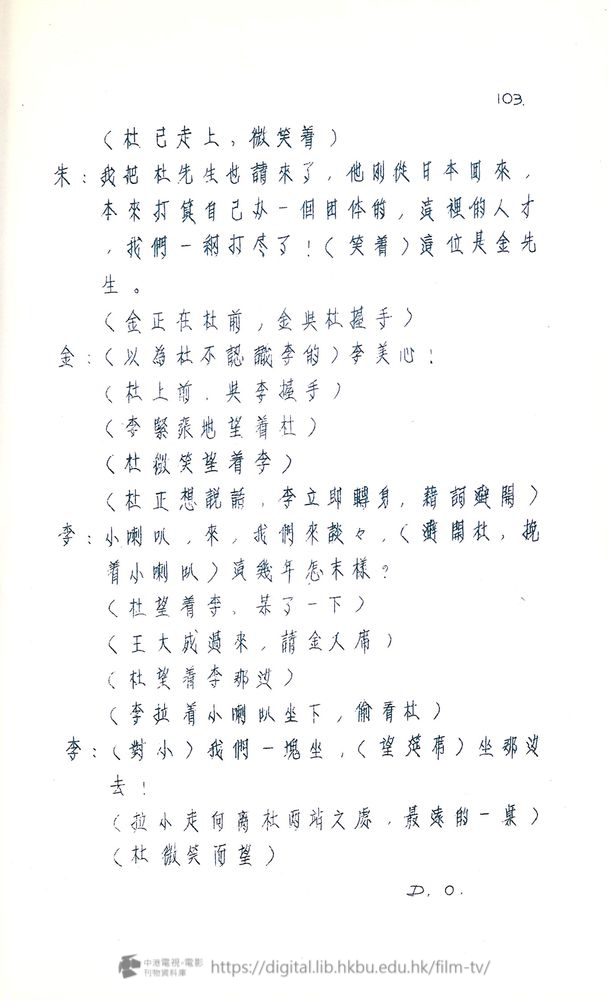 103.
（杜已走上，微笑着）
朱：我把杜先生也請來了，他刚從日本囬來，
本來打算自己办一個团体的，這裡的人才
，我們一網打尽了！（笑着）這位是金先
生。
（金正在杜前，金與杜握手）
金：（以為杜不認識李的）李美心！
（杜上前，與李握手）
（李緊張地望着杜）
（杜微笑望着李）
（杜正想説話，李立即轉身，藉詞避開）
李：小喇叭，來，我們來談々，（避開杜，挽
着小喇叭）這幾年怎末樣？
（杜望着李，呆了一下）
（王大成過來，請金入席）
（杜望着李那边）
（李拉着小喇叭坐下，偷看杜）
李：（對小）我們一塊坐，（望筵席）坐那边
去！
（拉小走向离杜而站之處，最遠的一桌）
（杜微笑而望）
D. O.
中港電視・電影
刊物資料庫
https://digital.lib.hkbu.edu.hk/film-tv/